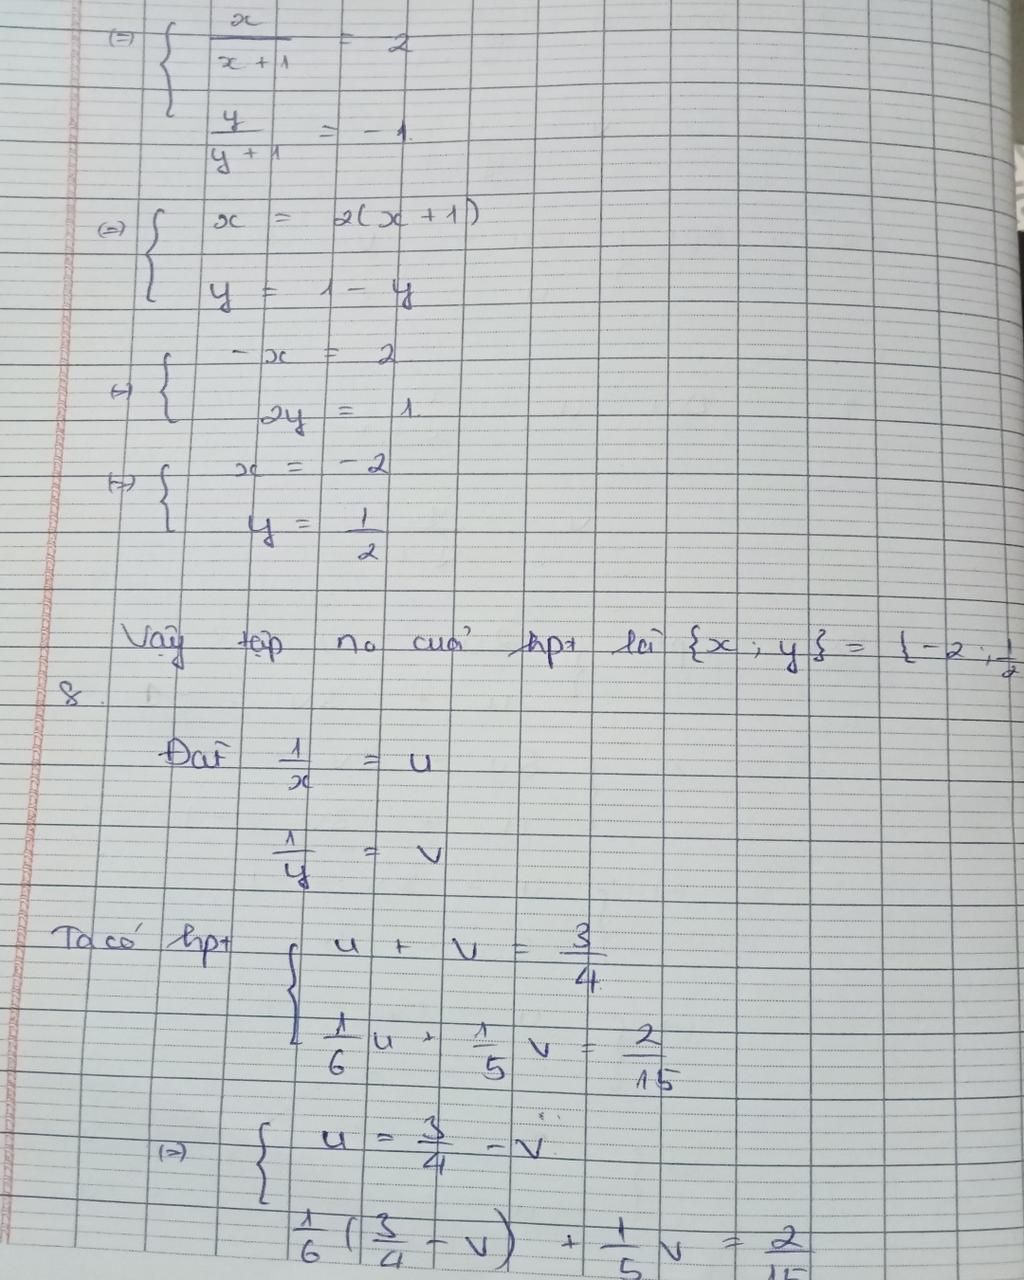 (=) { x/(x+1) = 2
y/(y+1) = -1
(=) { x = 2(x+1)
y = 1 - y
(=) { -x = 2
2y = 1
(=) { x = -2
y = 1/2
Vậy tập no của hpt là {x; y} = {-2; 1/2
8.
Đặt 1/x = u
1/y = v
Ta có hpt { u + v = 3/4
1/6 u + 1/5 v = 2/15
(=) { u = 3/4 - v
1/6 (3/4 - v) + 1/5 v = 2/15